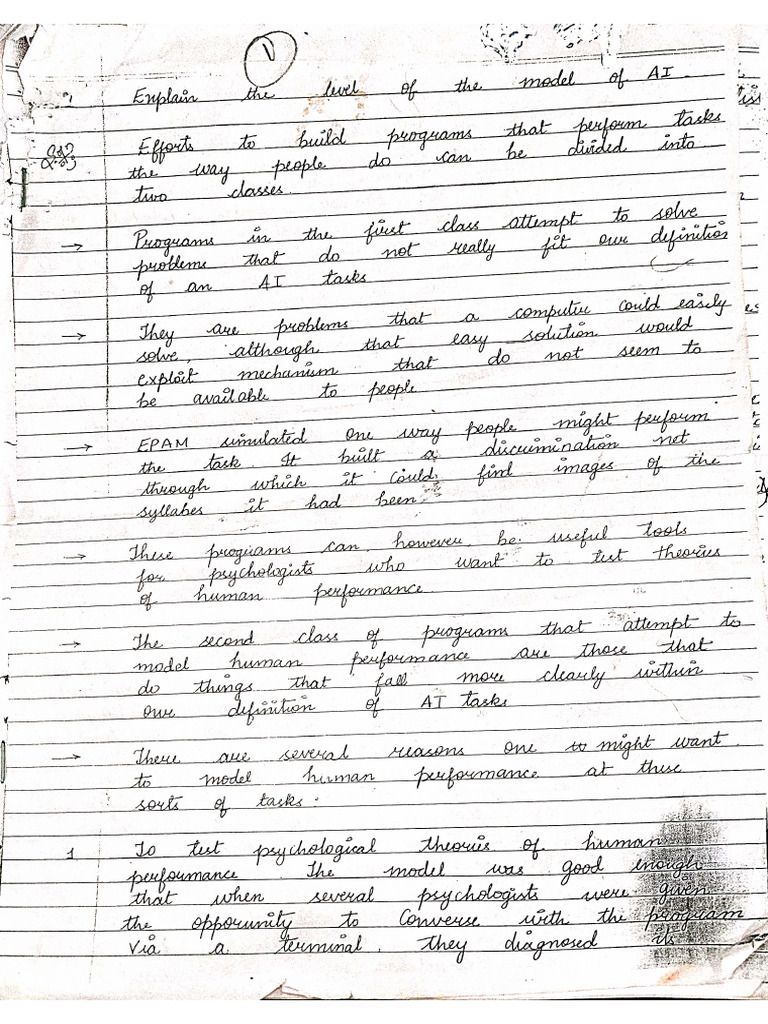 1
Explain the level of the model of AI.
Efforts to build programs that perform tasks
the way people do can be divided into
two classes.
→ Programs in the first class attempt to solve
problems that do not really fit our definition
of an AI tasks
→ They are problems that a computer could easily
solve, although that easy solution would
exploit mechanism that do not seem to
be available to people
→ EPAM simulated one way people might perform
the task. It built a discrimination net
through which it could find images of the
syllabes it had been
→ These programs can, however, be useful tools
for psychologists who want to test theories
of human performance
→ The second class of programs that attempt to
model human performance are those that
do things that fall more clearly within
our definition of AI tasks
→ There are several reasons one to might want
to model human performance at these
sorts of tasks:
1 To test psychological theories of human
performance. The model was good enough
that when several psychologists were given
the opporunity to Converse with the program
via a terminal, they diagnosed its